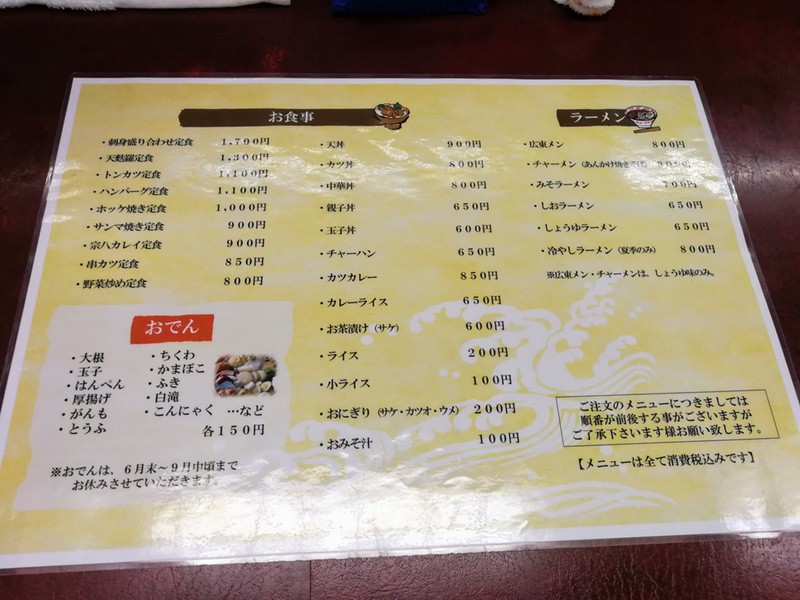 お食事
・刺身盛り合わせ定食 1,700円
・天麩羅定食 1,300円
・トンカツ定食 1,100円
・ハンバーグ定食 1,100円
・ホッケ焼き定食 1,000円
・サンマ焼き定食 900円
・宗八カレイ定食 900円
・串カツ定食 850円
・野菜炒め定食 800円
・天丼 900円
・カツ丼 800円
・中華丼 800円
・親子丼 650円
・玉子丼 600円
・チャーハン 650円
・カツカレー 850円
・カレーライス 650円
・お茶漬け(サケ) 600円
・ライス 200円
・小ライス 100円
・おにぎり(サケ・カツオ・ウメ) 200円
・おみそ汁 100円
ラーメン
・広東メン 800円
・チャーメン(あんかけ焼きそば)
・みそラーメン
・しおラーメン 650円
・しょうゆラーメン 650円
・冷やしラーメン(夏季のみ) 800円
※広東メン・チャーメンは、しょうゆ味のみ。
おでん
・大根
・玉子
・はんぺん
・厚揚げ
・がんも
・とうふ
・ちくわ
・かまぼこ
・ふき
・白滝
・こんにゃく …など
各150円
※おでんは、6月末~9月中頃まで
お休みさせていただきます。
ご注文のメニューにつきましては
順番が前後する事がございますが
ご了承下さいます様お願い致します。
【メニューは全て消費税込みです】